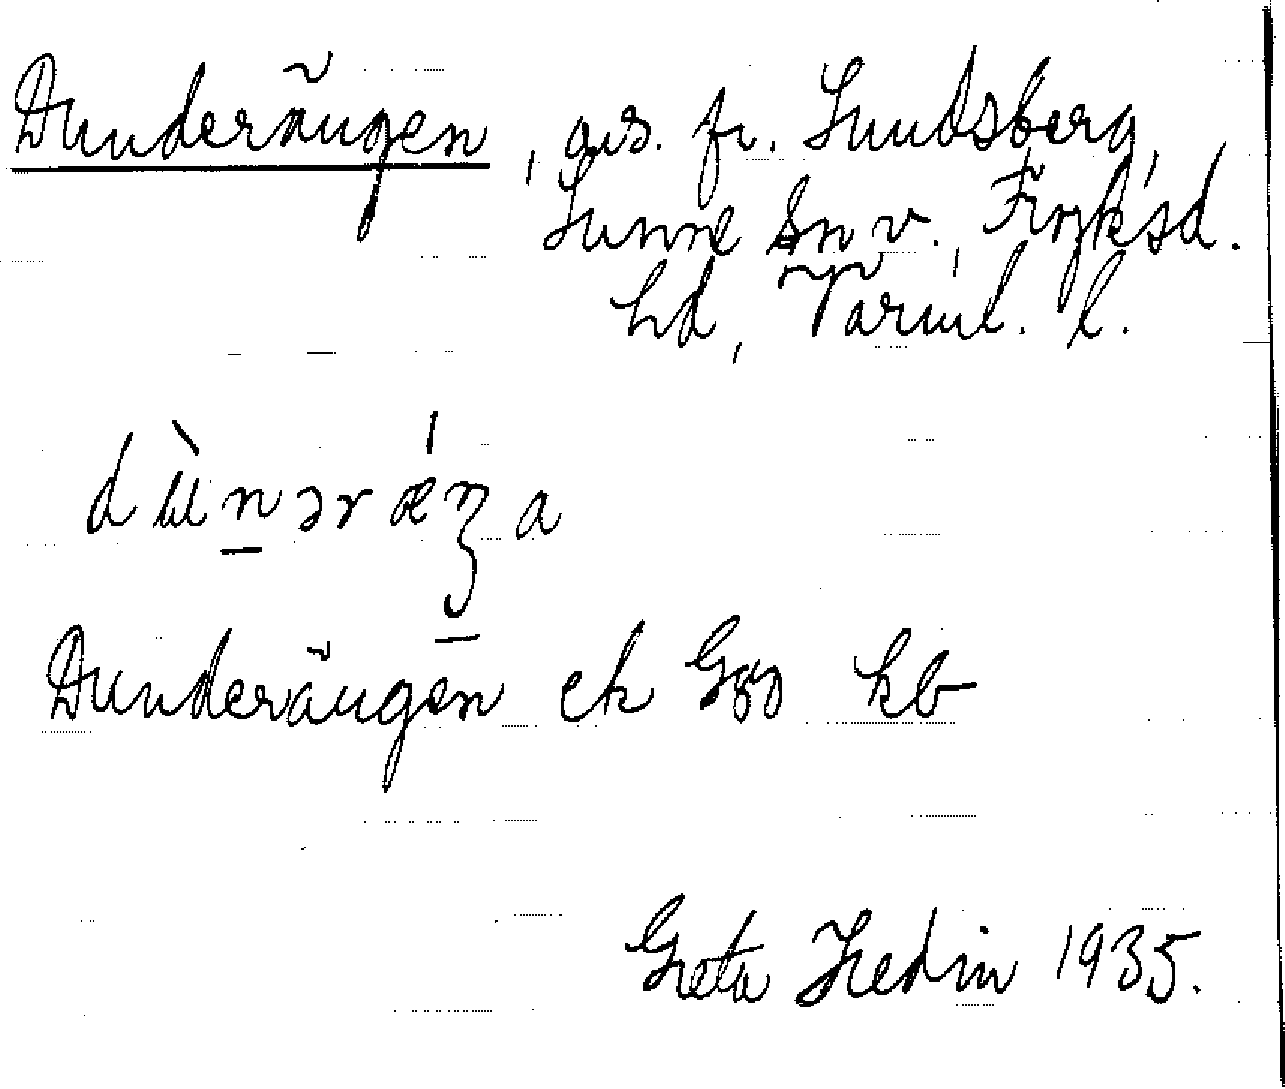 Dunderängen, avs. fr. Sundsberg,
Sunne sn v., Fryksd.
hd, Värml. l.
dùnəræ´ŋa
Dunderängen ek G50 kb
Greta Hedin 1935.